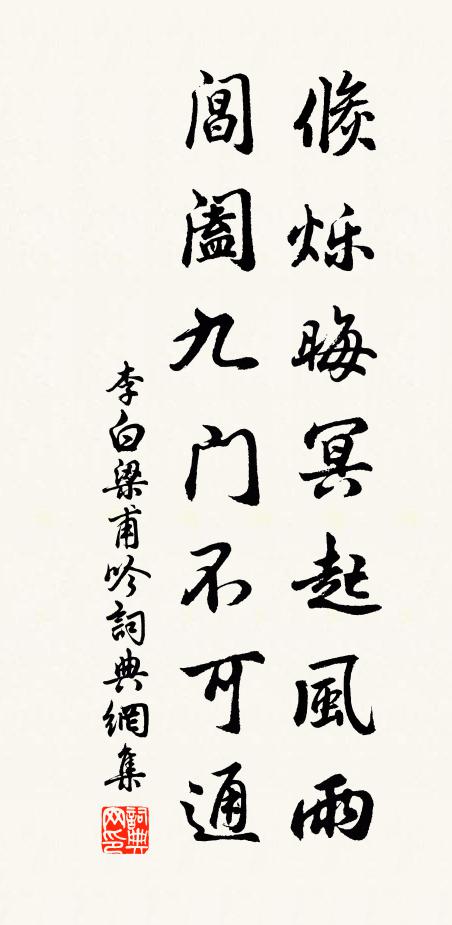 倐烁晦冥起風雨
阊阖九门不可通
李白梁甫吟詞典網集
詞典
网印